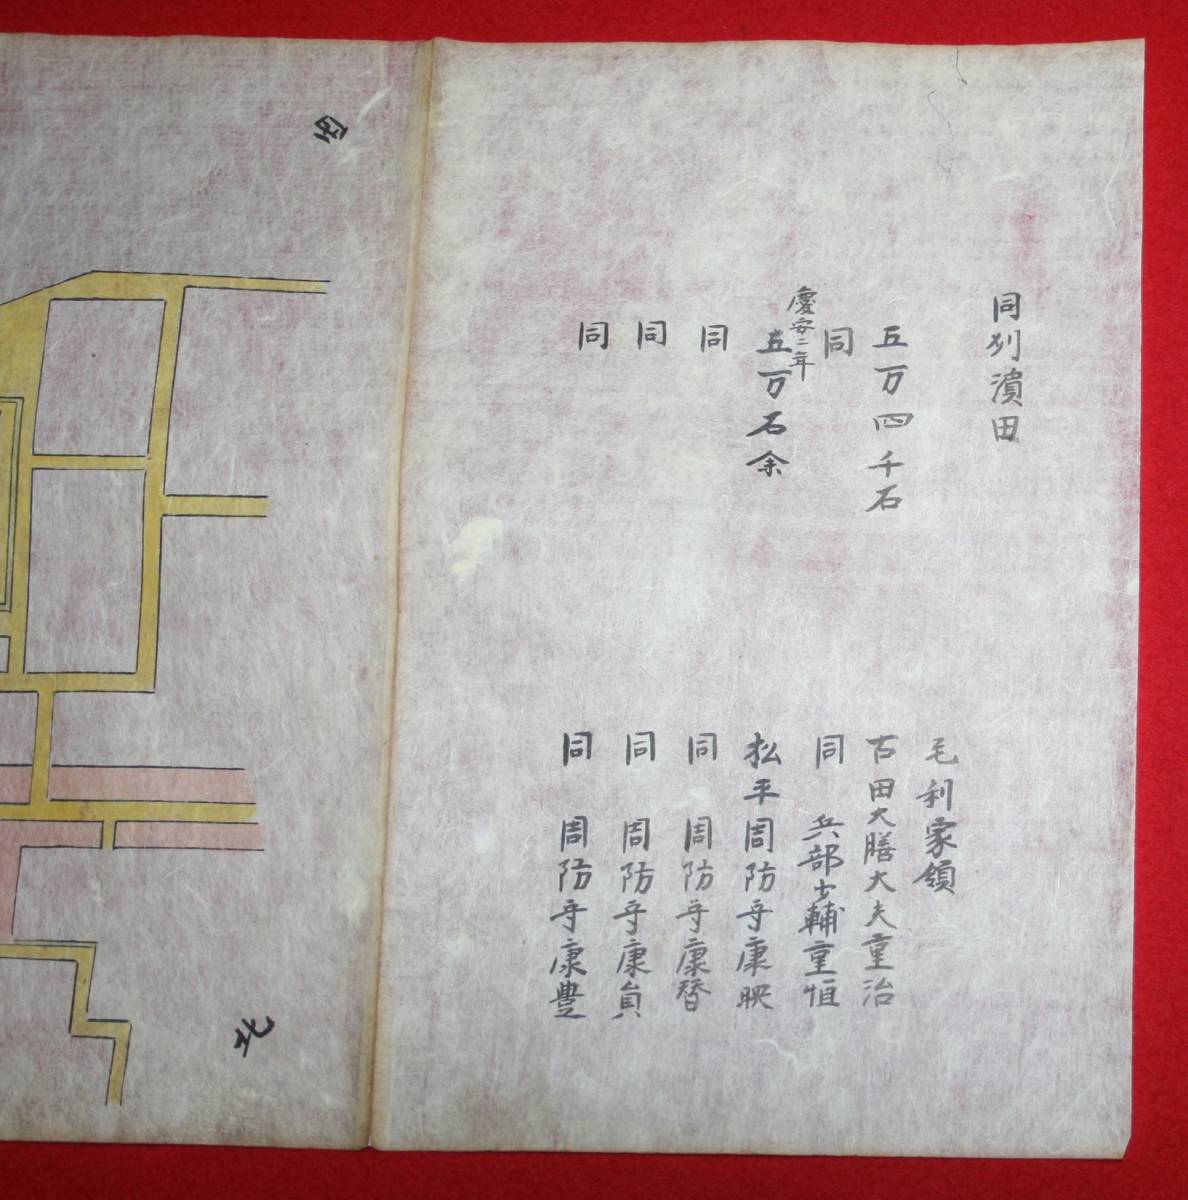 同列濱田
毛利家領
五万四千石 古田大膳大夫重治
同 同 兵部少輔重恒
慶安二年
五万石余 松平周防守康映
同 同 周防守康
同 同 周防守康員
同 同 周防守康豊
西
北